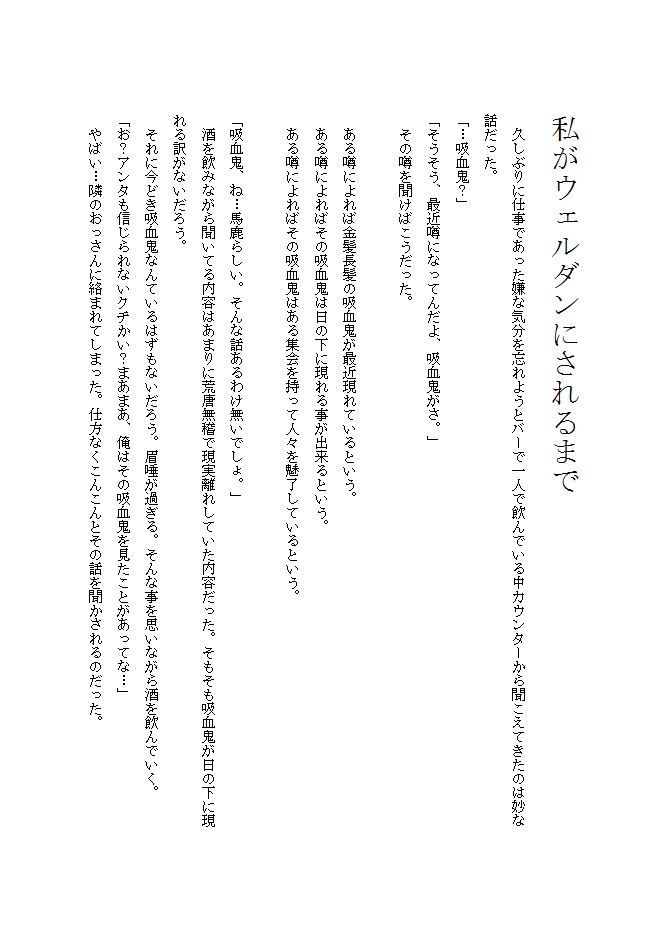 私がウェルダンにされるまで
久しぶりに仕事であった嫌な気分を忘れようとバーで一人で飲んでいる中カウンターから聞こえてきたのは妙な
話だった。
「…吸血鬼？」
「そうそう、最近噂になってんだよ、吸血鬼がさ。」
その噂を聞けばこうだった。
ある噂によれば金髪長髪の吸血鬼が最近現れているという。
ある噂によればその吸血鬼は日の下に現れる事が出来るという。
ある噂によればその吸血鬼はある集会を持って人々を魅了しているという。
「吸血鬼、ね…馬鹿らしい。そんな話あるわけ無いでしょ。」
酒を飲みながら聞いてる内容はあまりに荒唐無稽で現実離れしていた内容だった。そもそも吸血鬼が日の下に現
れる訳がないだろう。
それに今どき吸血鬼なんているはずもないだろう。眉唾が過ぎる。そんな事を思いながら酒を飲んでいく。
「お？アンタも信じられないクチかい？まあまあ、俺はその吸血鬼を見たことがあってな…」
やばい…隣のおっさんに絡まれてしまった。仕方なくこんこんとその話を聞かされるのだった。